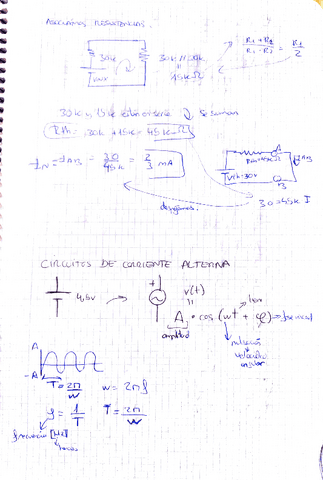 ASOCIAMOS RESISTENCIAS.
30k
30k//30k
=
15kΩ
R1 + R2
R1 · R2
= R1
2
30k y 15k están en serie, se suman
RTh = 30k + 15k = 45kΩ
IN = IAB = 30
45k
= 2
3 mA
A
RTh=45k
VTh=30V
IAB
B
despejamos.
30=45k I
CIRCUITOS DE CORRIENTE ALTERNA
4,5V
+
v(t)
=
A · cos (wt + φ)
amplitud
velocidad
angular
A
-A
T = 2π
w
w = 2πf
f = 1
T
T = 2π
w
frecuencia [Hz]